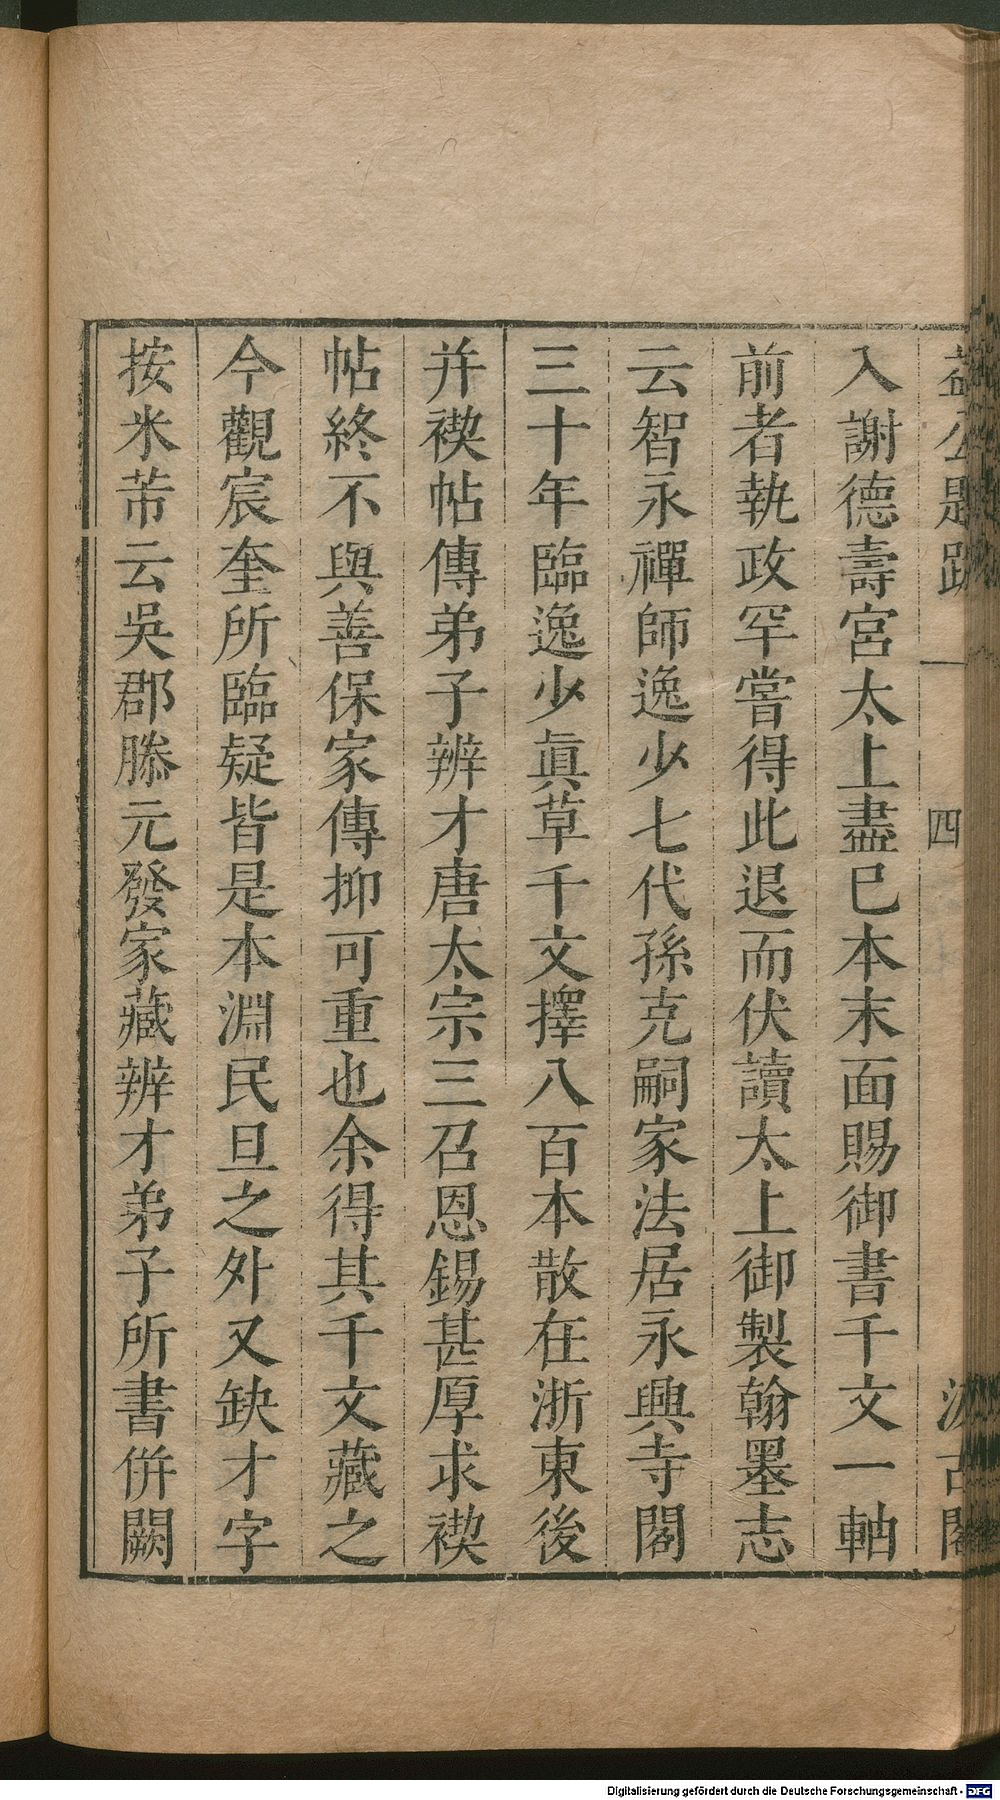 益公題跋 一 四 汲古閣
入謝德壽宮太上盡巳本末面賜御書千文一軸
前者執政罕嘗得此退而伏讀太上御製翰墨志
云智永禪師逸少七代孫克嗣家法居永興寺閣
三十年臨逸少眞草千文擇八百本散在浙東後
并禊帖傳弟子辨才唐太宗三召恩錫甚厚求禊
帖終不與善保家傳抑可重也余得其千文藏之
今觀宸奎所臨疑皆是本淵民旦之外又缺才字
按米芾云吳郡滕元發家藏辨才弟子所書併闕
Digitalisierung gefördert durch die Deutsche Forschungsgemeinschaft - DFG